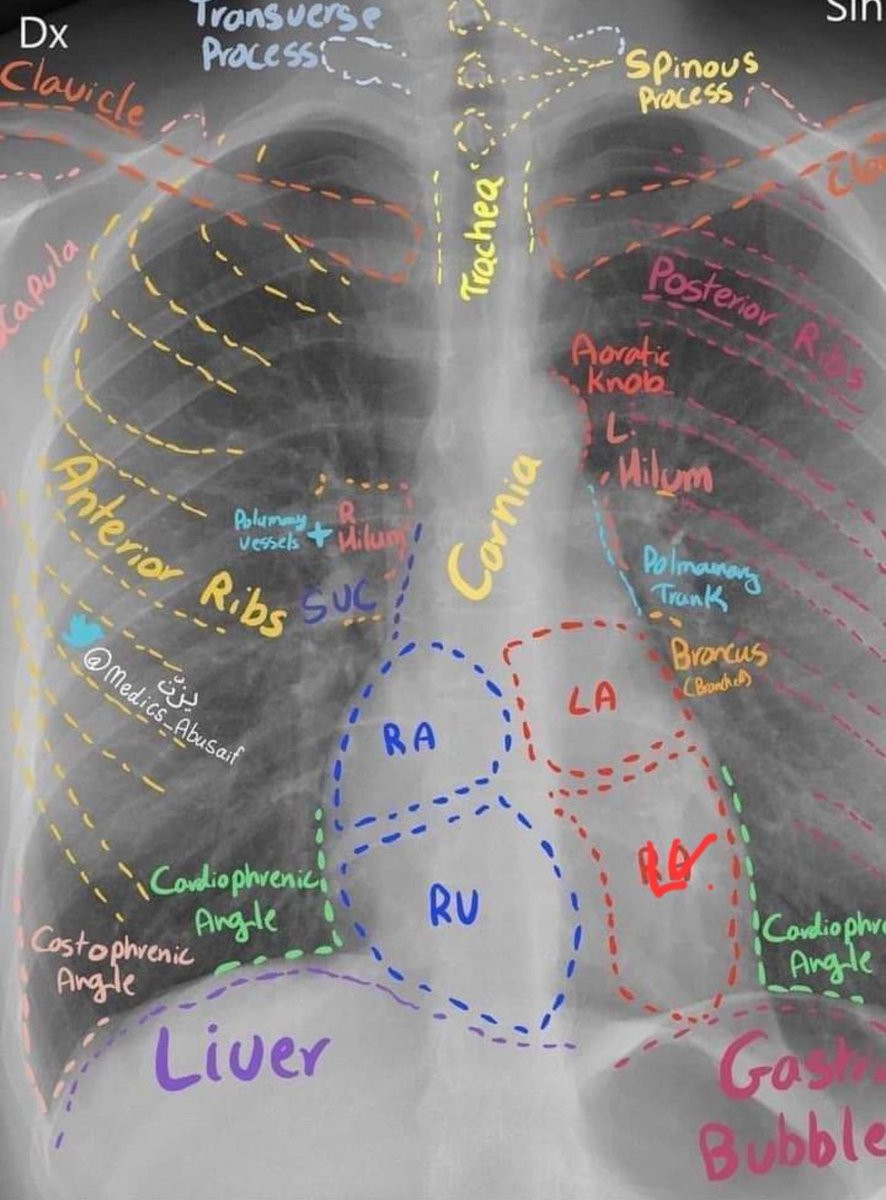 Dx
Transverse
Process
Sin
Clavicle
Spinous
Process
Clav
Trachea
scapula
Posterior Ribs
Aoratic
Knob
L.
Hilum
Anterior Ribs
Polummy
vessels +
R
Hilum
Carnia
SUC
Polmounary
Trunk
Broncus
(Branched)
@Medics_Abusaif
يزن
RA
LA
RU
Cardiophrenic
Angle
Costophrenic
Angle
Cardiophre
Angle
Liver
Gastri
Bubble